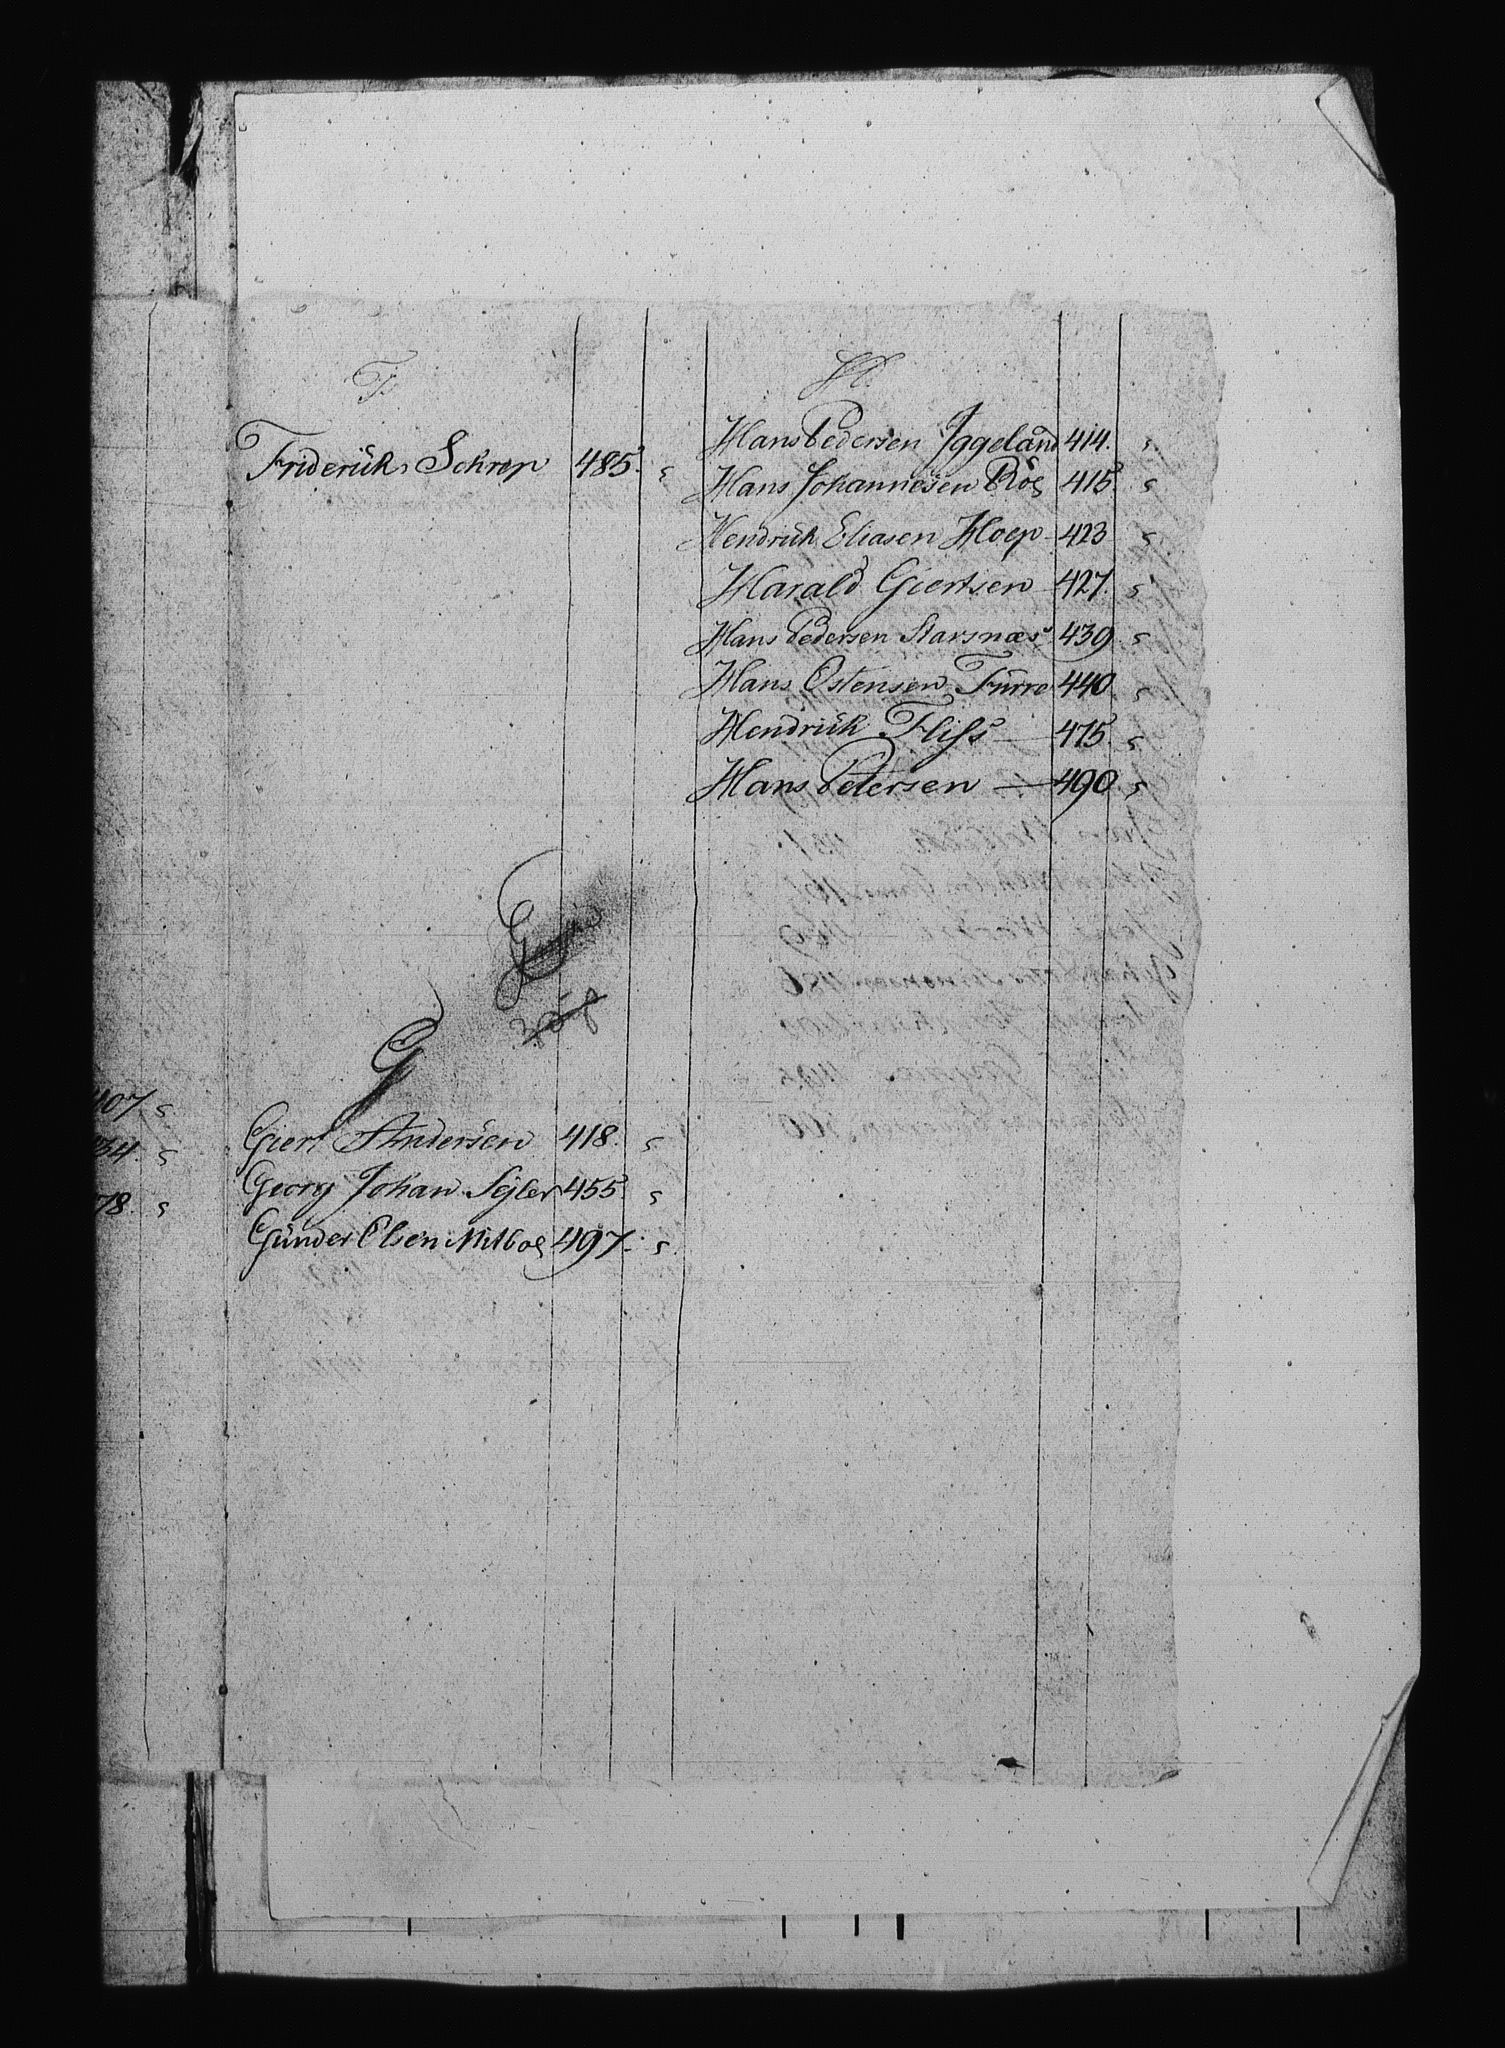 F.
Friderich Schrep 485.
G
Giert Andersen 418.
Georg Johan Sejler 455.
Günder Olsen Mitboe 497.
H.
Hans Pedersen Iggeland 414.
Hans Johannesen Röe 415.
Hendrich Eliasen Hoep 423
Harald Giertsen 427.
Hans Pedersen Starsnæs 439
Hans Ostensen Fürre 440
Hendrich Fliss 475.
Hans Petersen 490
407
34.
78.